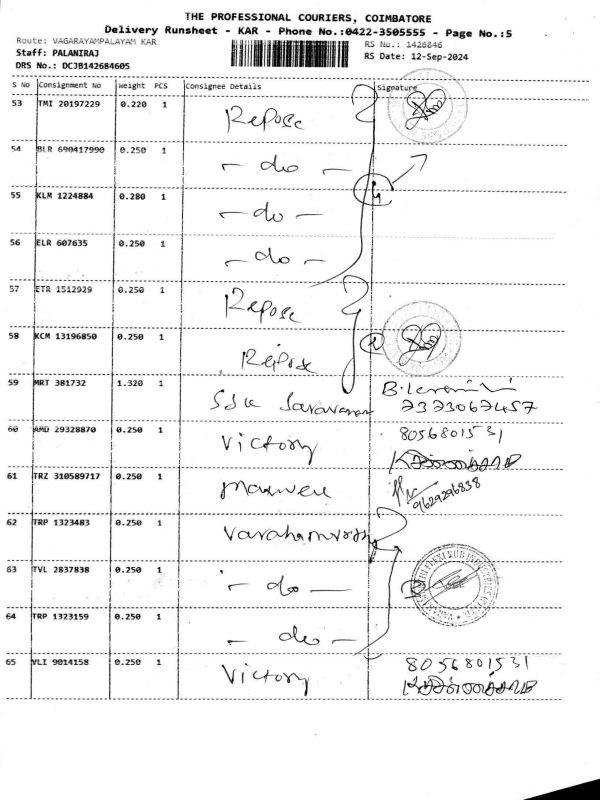 THE PROFESSIONAL COURIERS, COIMBATORE
Delivery Runsheet - KAR - Phone No.:0422-3505555 - Page No.:5
Route: VAGARAYAMPALAYAM KAR
RS No.: 1426846
Staff: PALANIRAJ
RS Date: 12-Sep-2024
DRS No.: DCJB142684605
S No Consignment No Weight PCS Consignee Details Signature
53 TMI 20197229 0.220 1 Repose
54 BLR 690417990 0.250 1 - do -
55 KLM 1224884 0.280 1 - do -
4
56 ELR 607635 0.250 1 - do -
57 ETR 1512929 0.250 1 Repose
58 KCM 13196850 0.250 1 Repose
59 MRT 381732 1.320 1 Saravanan
60 AMD 29328870 0.250 1 Victory 8056801531
61 TRZ 310589717 0.250 1 9629296838
62 TRP 1323483 0.250 1
63 TVL 2837838 0.250 1 - do -
64 TRP 1323159 0.250 1 - do -
65 VLI 9014158 0.250 1 Victory 8056801531